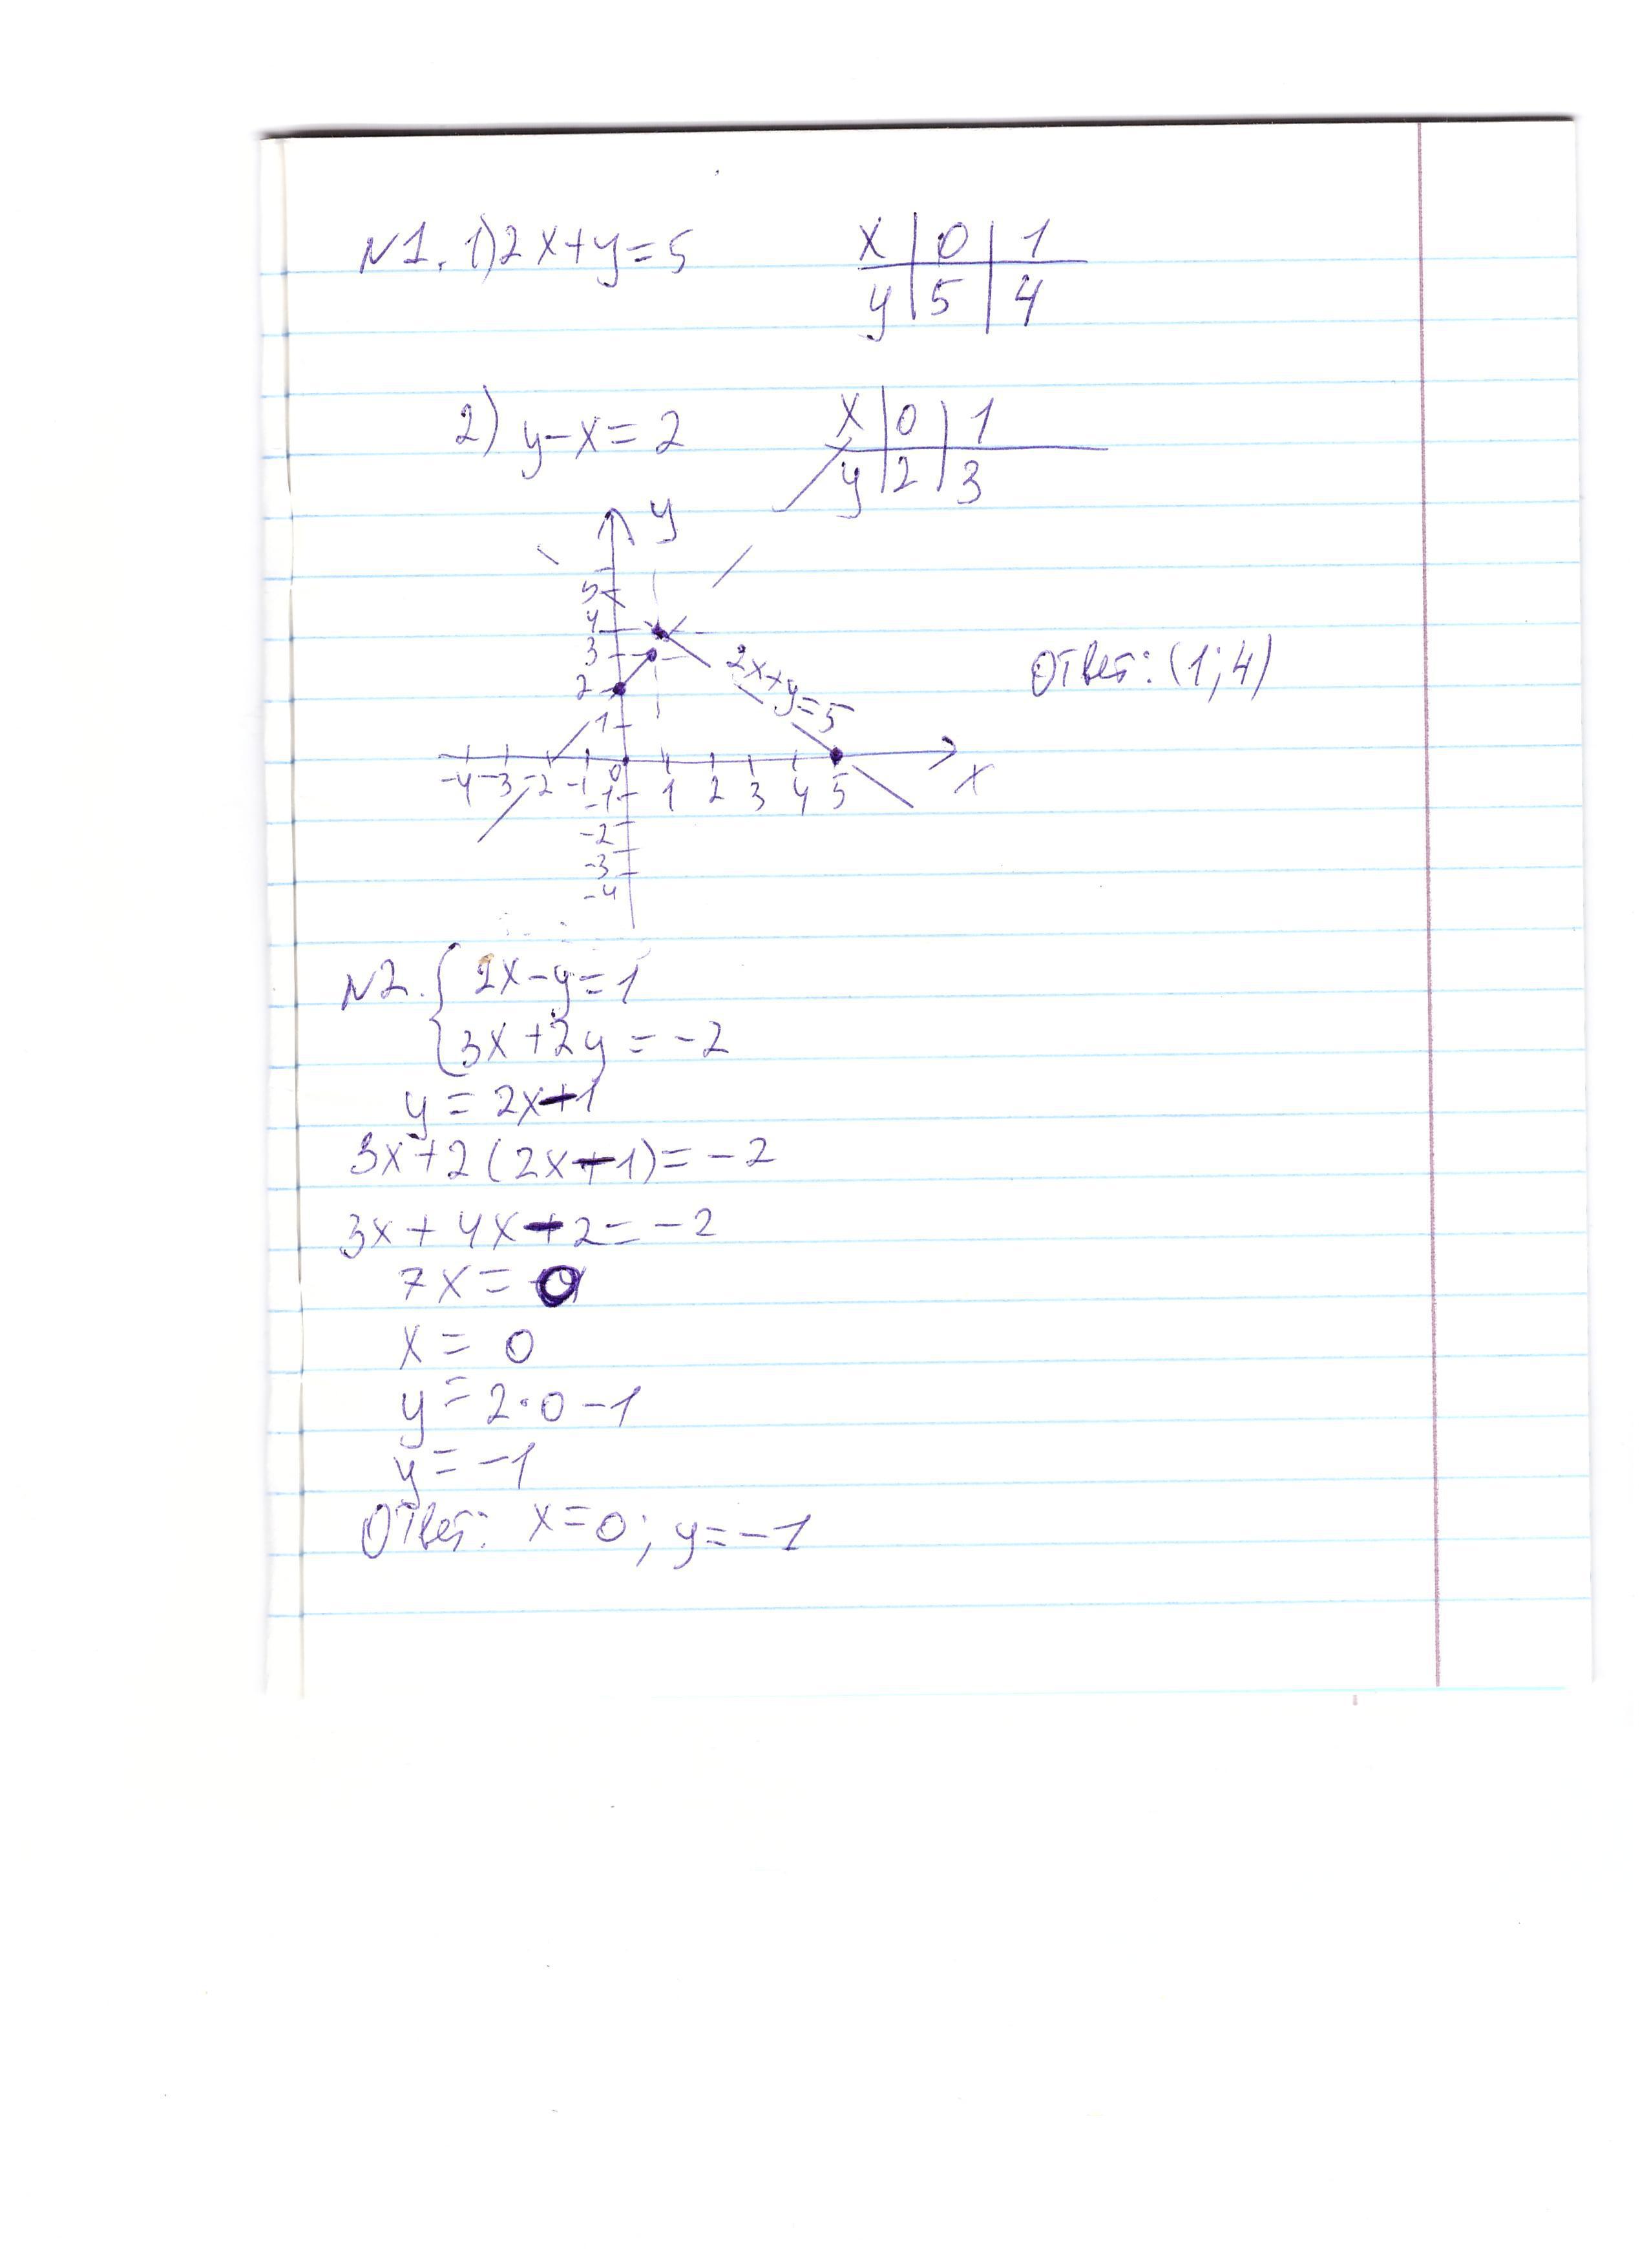 N1. 1) 2x+y=5
x | 0 | 1
y | 5 | 4
2) y-x=2
x | 0 | 1
y | 2 | 3
y
5
4
3
2
1
2x+y=5
Ответ: (1; 4)
-4 -3 -2 -1 0 1 2 3 4 5 x
-1
-2
-3
-4
N2. { 2x-y=1
3x+2y=-2
y=2x-1
3x+2(2x-1)=-2
3x+4x-2=-2
7x=0
x=0
y=2·0-1
y=-1
Ответ: x=0; y=-1